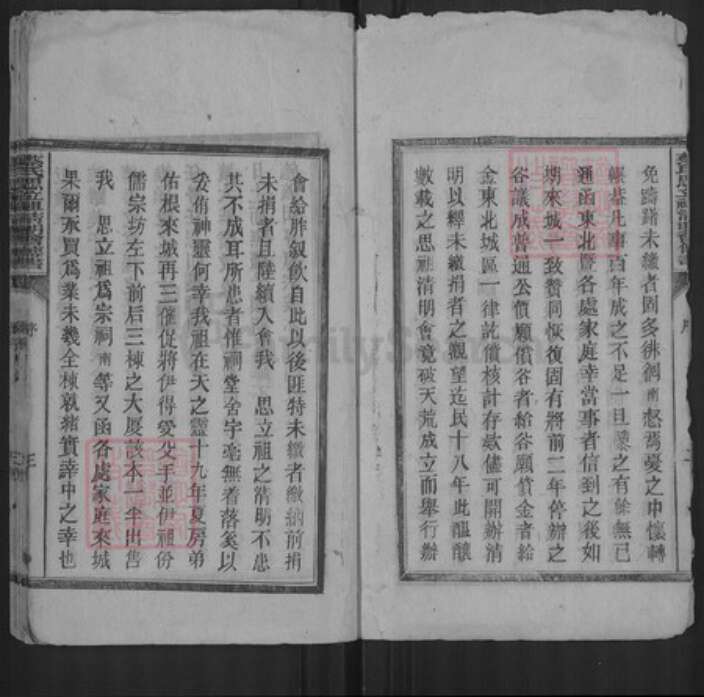 免躊躇未繳者固多徘徊南惄焉憂之中懷轉
輾基凡事百年成之不足一旦隳之有餘無已
通函東北暨各處家庭幸當事者信到之後如
期來城一致贊同恢復固有將前二年停辦之
谷議成普通公價願償谷者給谷願償金者給
金東北城區一律訖償核計存欵儘可開辦清
明以釋未繳捐者之觀望迄民十八年此醞釀
數載之思祖清明會竟破天荒成立而舉行辦
序
會給胙叙飲自此以後匪特未繳者繳納前捐
未捐者且陸續入會我 思立祖之清明不患
其不成耳所患者惟祠堂舍宇毫無着落奚以
妥侑神靈何幸我祖在天之靈十九年夏房弟
佑根來城再三催促將伊得愛父手並伊祖份
儒宗坊左下前后三棟之大厦該本一半出售
我 思立祖爲宗祠南等又函各處家庭來城
果爾承買爲業未幾全棟執緒實幸中之幸也
序
FamilySearch